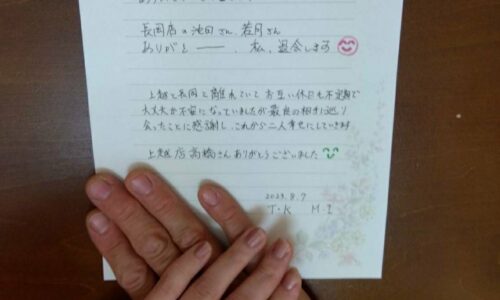 長岡店の池田さん、若月さん
ありがとーー、私、退会します
上越と長岡と離れていて お互い休日も不定期で
大丈夫か不安になっていましたが最良の相手に巡り
会ったことに感謝し、これから二人幸せにしていきます
上越店高橋さんありがとうございました
2023.8.7
T・K M・I